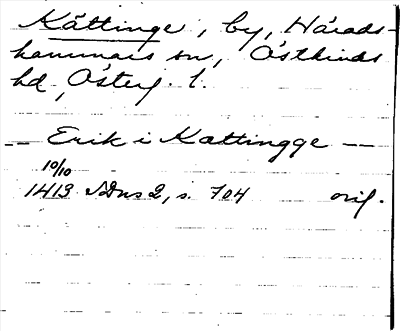 Kättinge, by, Härads-
hammars sn, Östkinds
hd, Österg. l.
— Erik i Kattingge —
10/10
1413 SDns 2, s. 704 orig.